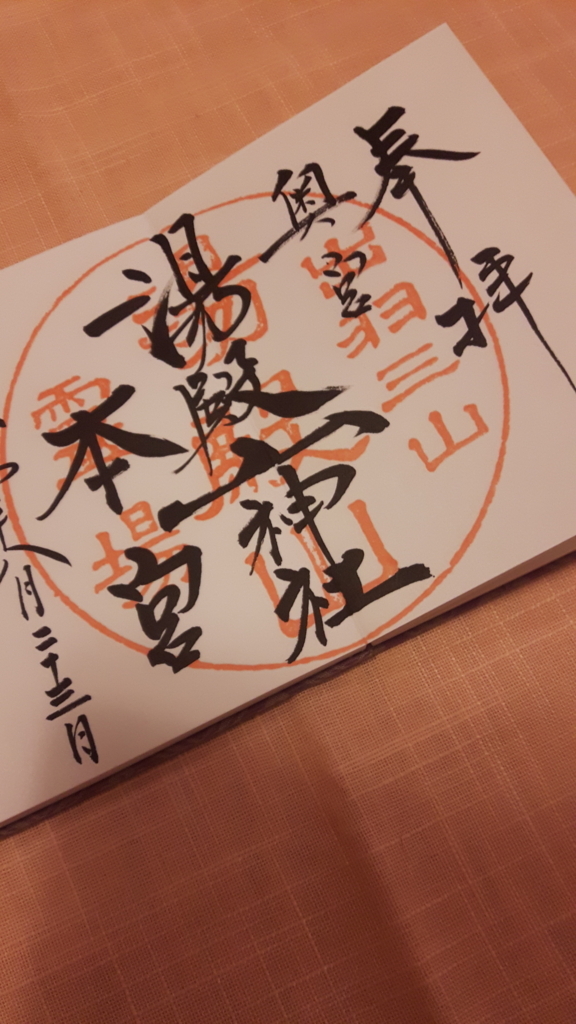 奉拝
奥宮
湯殿山神社
本宮
月二十三日
出羽三山
湯殿山
霊場